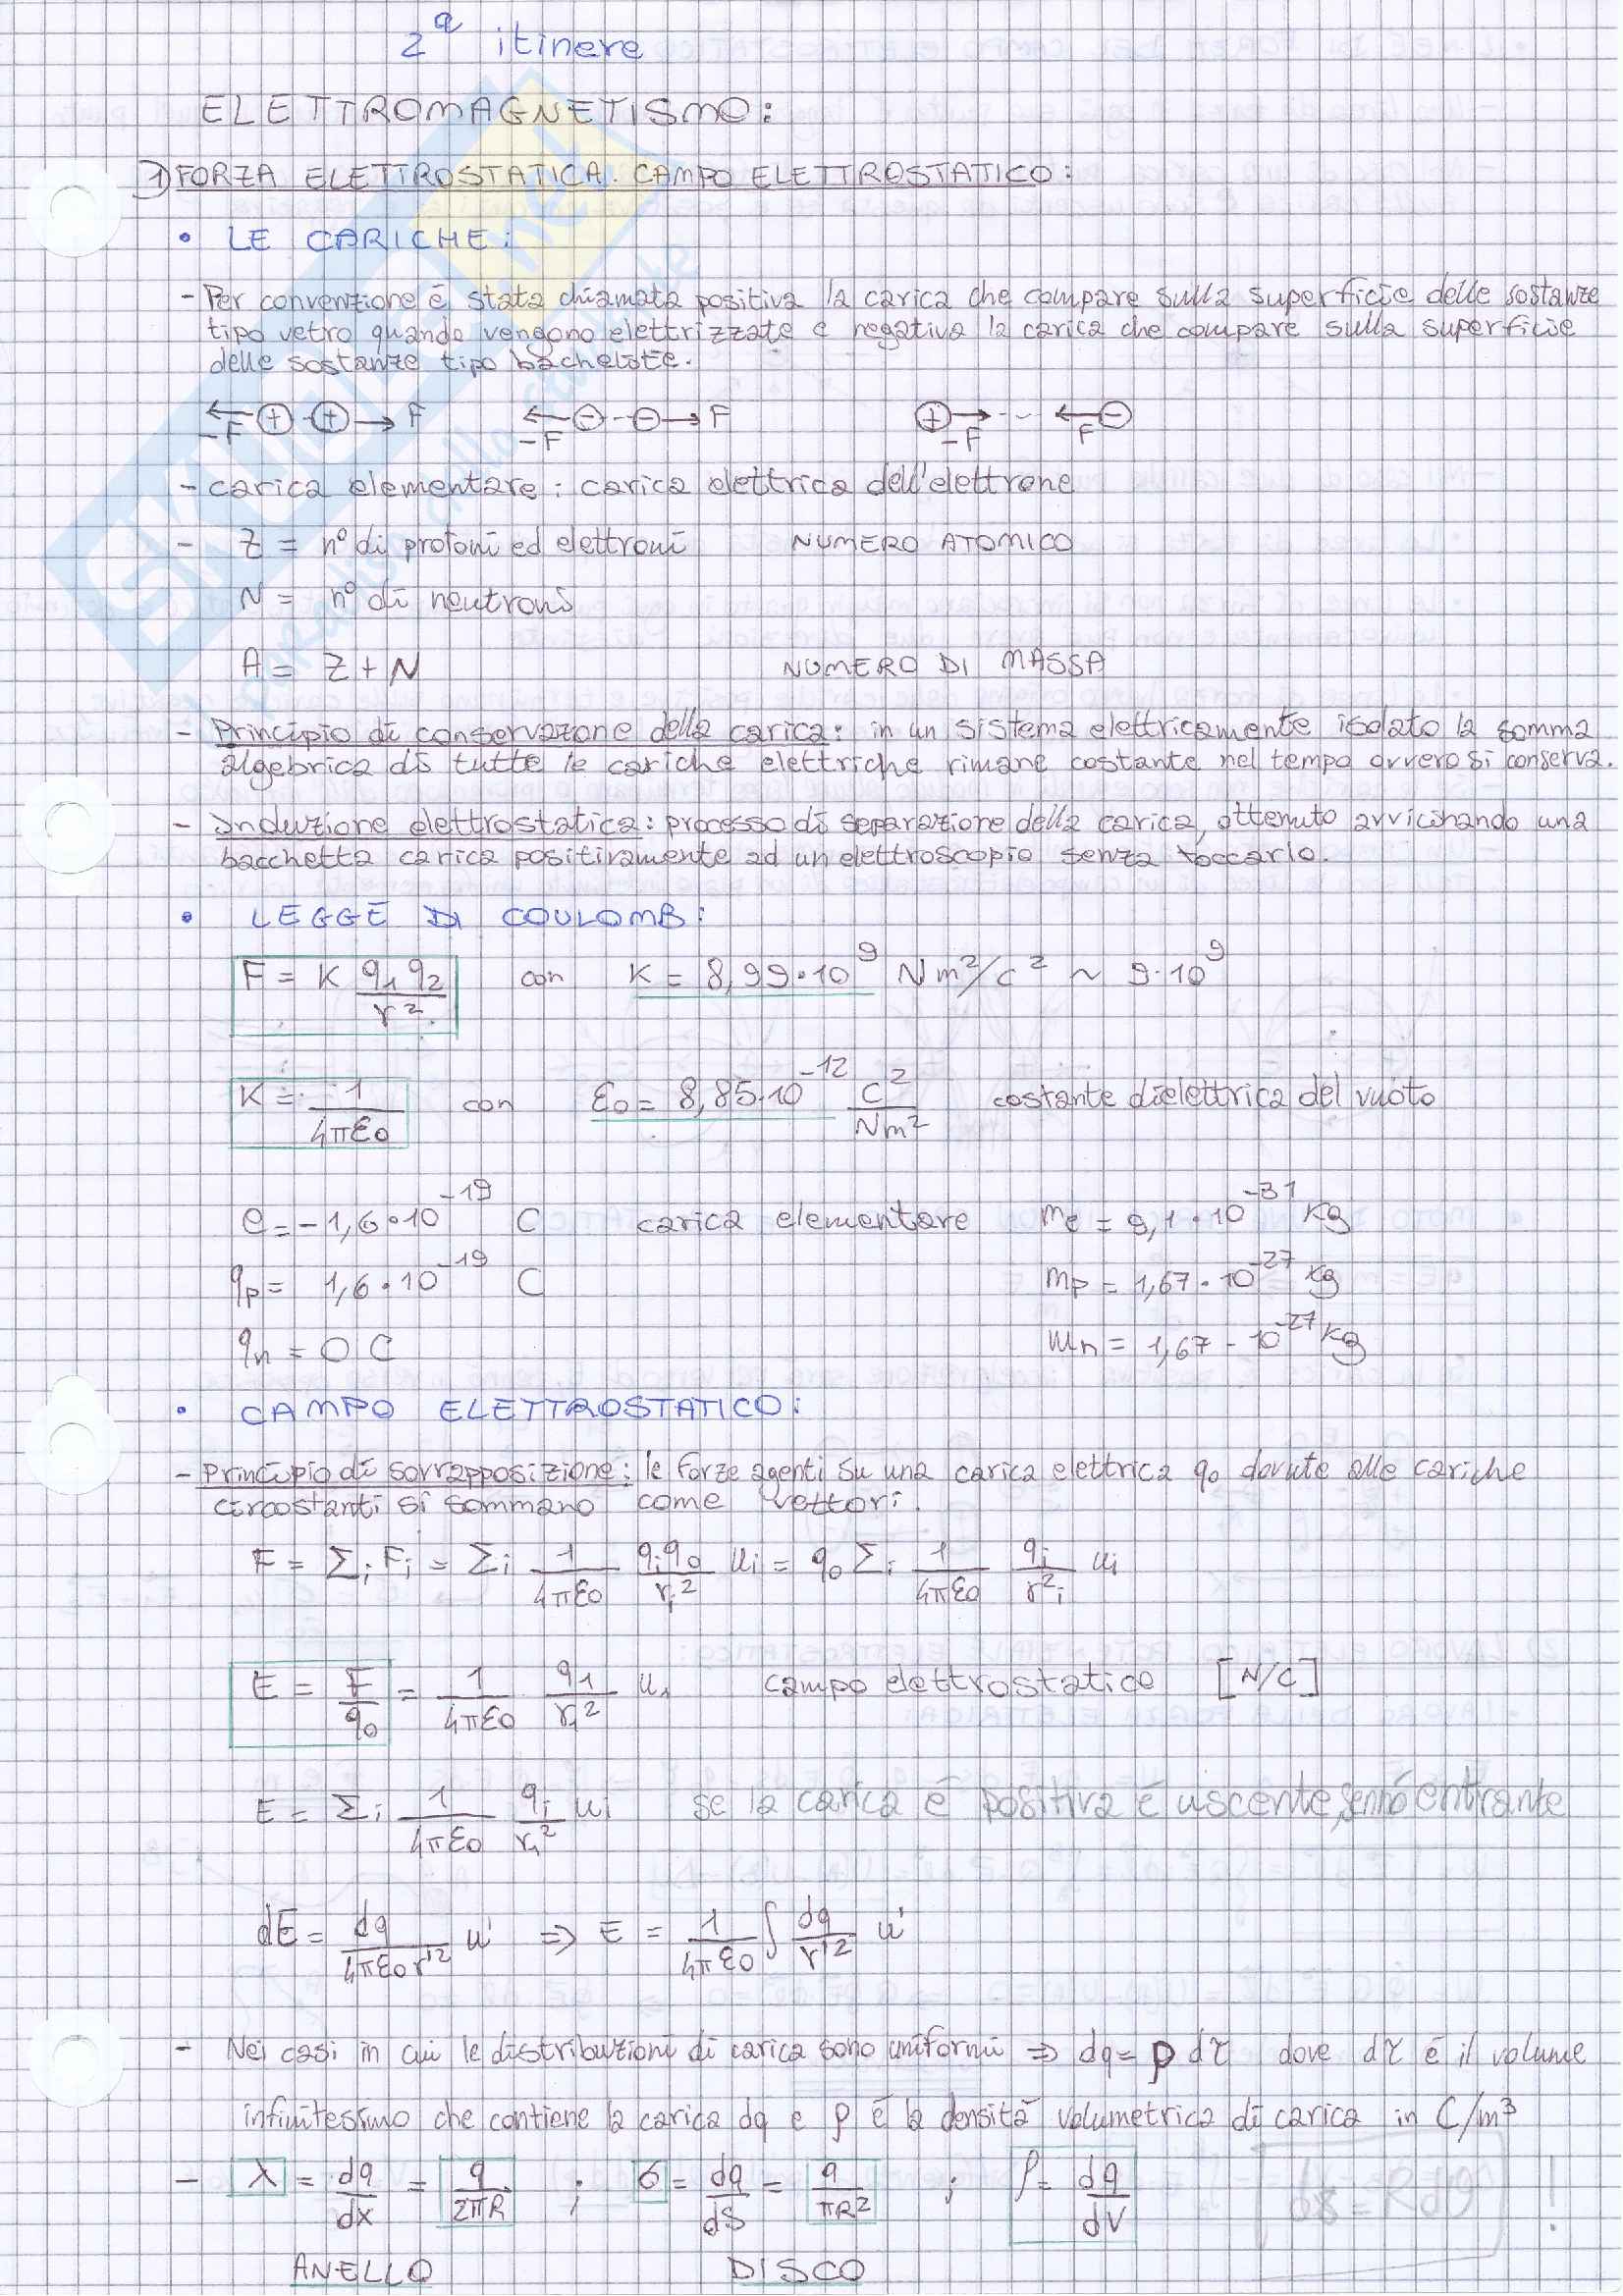 2ª itinere
ELETTROMAGNETISMO:
1) FORZA ELETTROSTATICA. CAMPO ELETTROSTATICO:
• LE CARICHE:
- Per convenzione è stata chiamata positiva la carica che compare sulla superficie delle sostanze
tipo vetro quando vengono elettrizzate e negativa la carica che compare sulla superficie
delle sostanze tipo bachelite.
-F + + F -F - - F + -F F -
- carica elementare: carica elettrica dell'elettrone
- Z = n° di protoni ed elettroni NUMERO ATOMICO
N = n° di neutroni
A = Z + N NUMERO DI MASSA
- Principio di conservazione della carica: in un sistema elettricamente isolato la somma
algebrica di tutte le cariche elettriche rimane costante nel tempo ovvero si conserva.
- Induzione elettrostatica: processo di separazione della carica, ottenuto avvicinando una
bacchetta carica positivamente ad un elettroscopio senza toccarlo.
• LEGGE DI COULOMB:
F = K q1 q2 / r² con K = 8,99·10⁹ Nm²/C² ~ 9·10⁹
K = 1 / 4πε0 con ε0 = 8,85·10⁻¹² C²/Nm² costante dielettrica del vuoto
e = -1,6·10⁻¹⁹ C carica elementare me = 9,1·10⁻³¹ kg
qp = 1,6·10⁻¹⁹ C mp = 1,67·10⁻²⁷ kg
qn = 0 C mn = 1,67·10⁻²⁷ kg
• CAMPO ELETTROSTATICO:
- Principio di sovrapposizione: le forze agenti su una carica elettrica q0 dovute alle cariche
circostanti si sommano come vettori.
F = Σi Fi = Σi 1/4πε0 qi q0/ri² ui = q0 Σi 1/4πε0 qi/ri² ui
E = F/q0 = 1/4πε0 q1/r1² u1 campo elettrostatico [N/C]
E = Σi 1/4πε0 qi/ri² ui se la carica è positiva è uscente, sennò entrante
dE = dq/4πε0r'² u' ⇒ E = 1/4πε0 ∫ dq/r'² u'
- Nei casi in cui le distribuzioni di carica sono uniformi ⇒ dq = ρ dτ dove dτ è il volume
infinitesimo che contiene la carica dq e ρ è la densità volumetrica di carica in C/m³
- λ = dq/dx = q/2πR ; σ = dq/dS = q/πR² ; ρ = dq/dV ds = Rdθ !
ANELLO DISCO